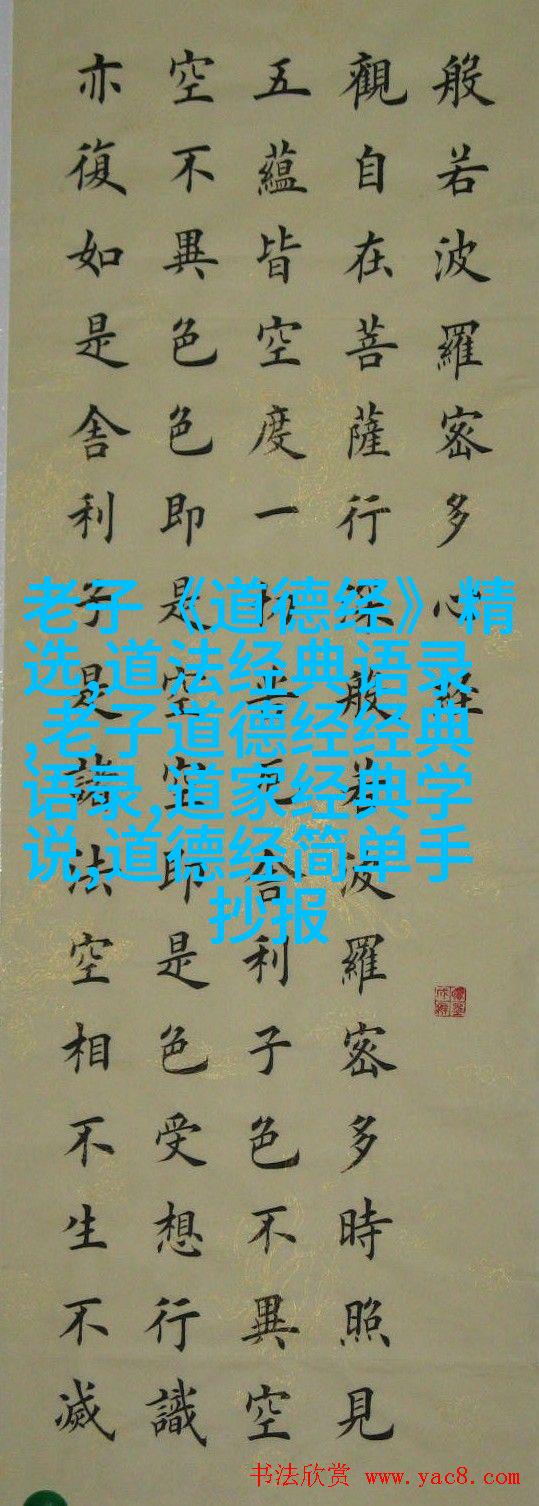 般若波羅密多心經
觀自在菩薩行深般若波羅密多時照見
五蘊皆空度一切苦厄舍利子色不異空
空不異色色即是空空即是色受想行識
亦復如是舍利子是諸法空相不生不滅
老子《道德经》精
选,道法经典语录
,老子道德经经典
语录,道家经典学
说,道德经简单手
抄报
书法欣赏 www.yac8.com